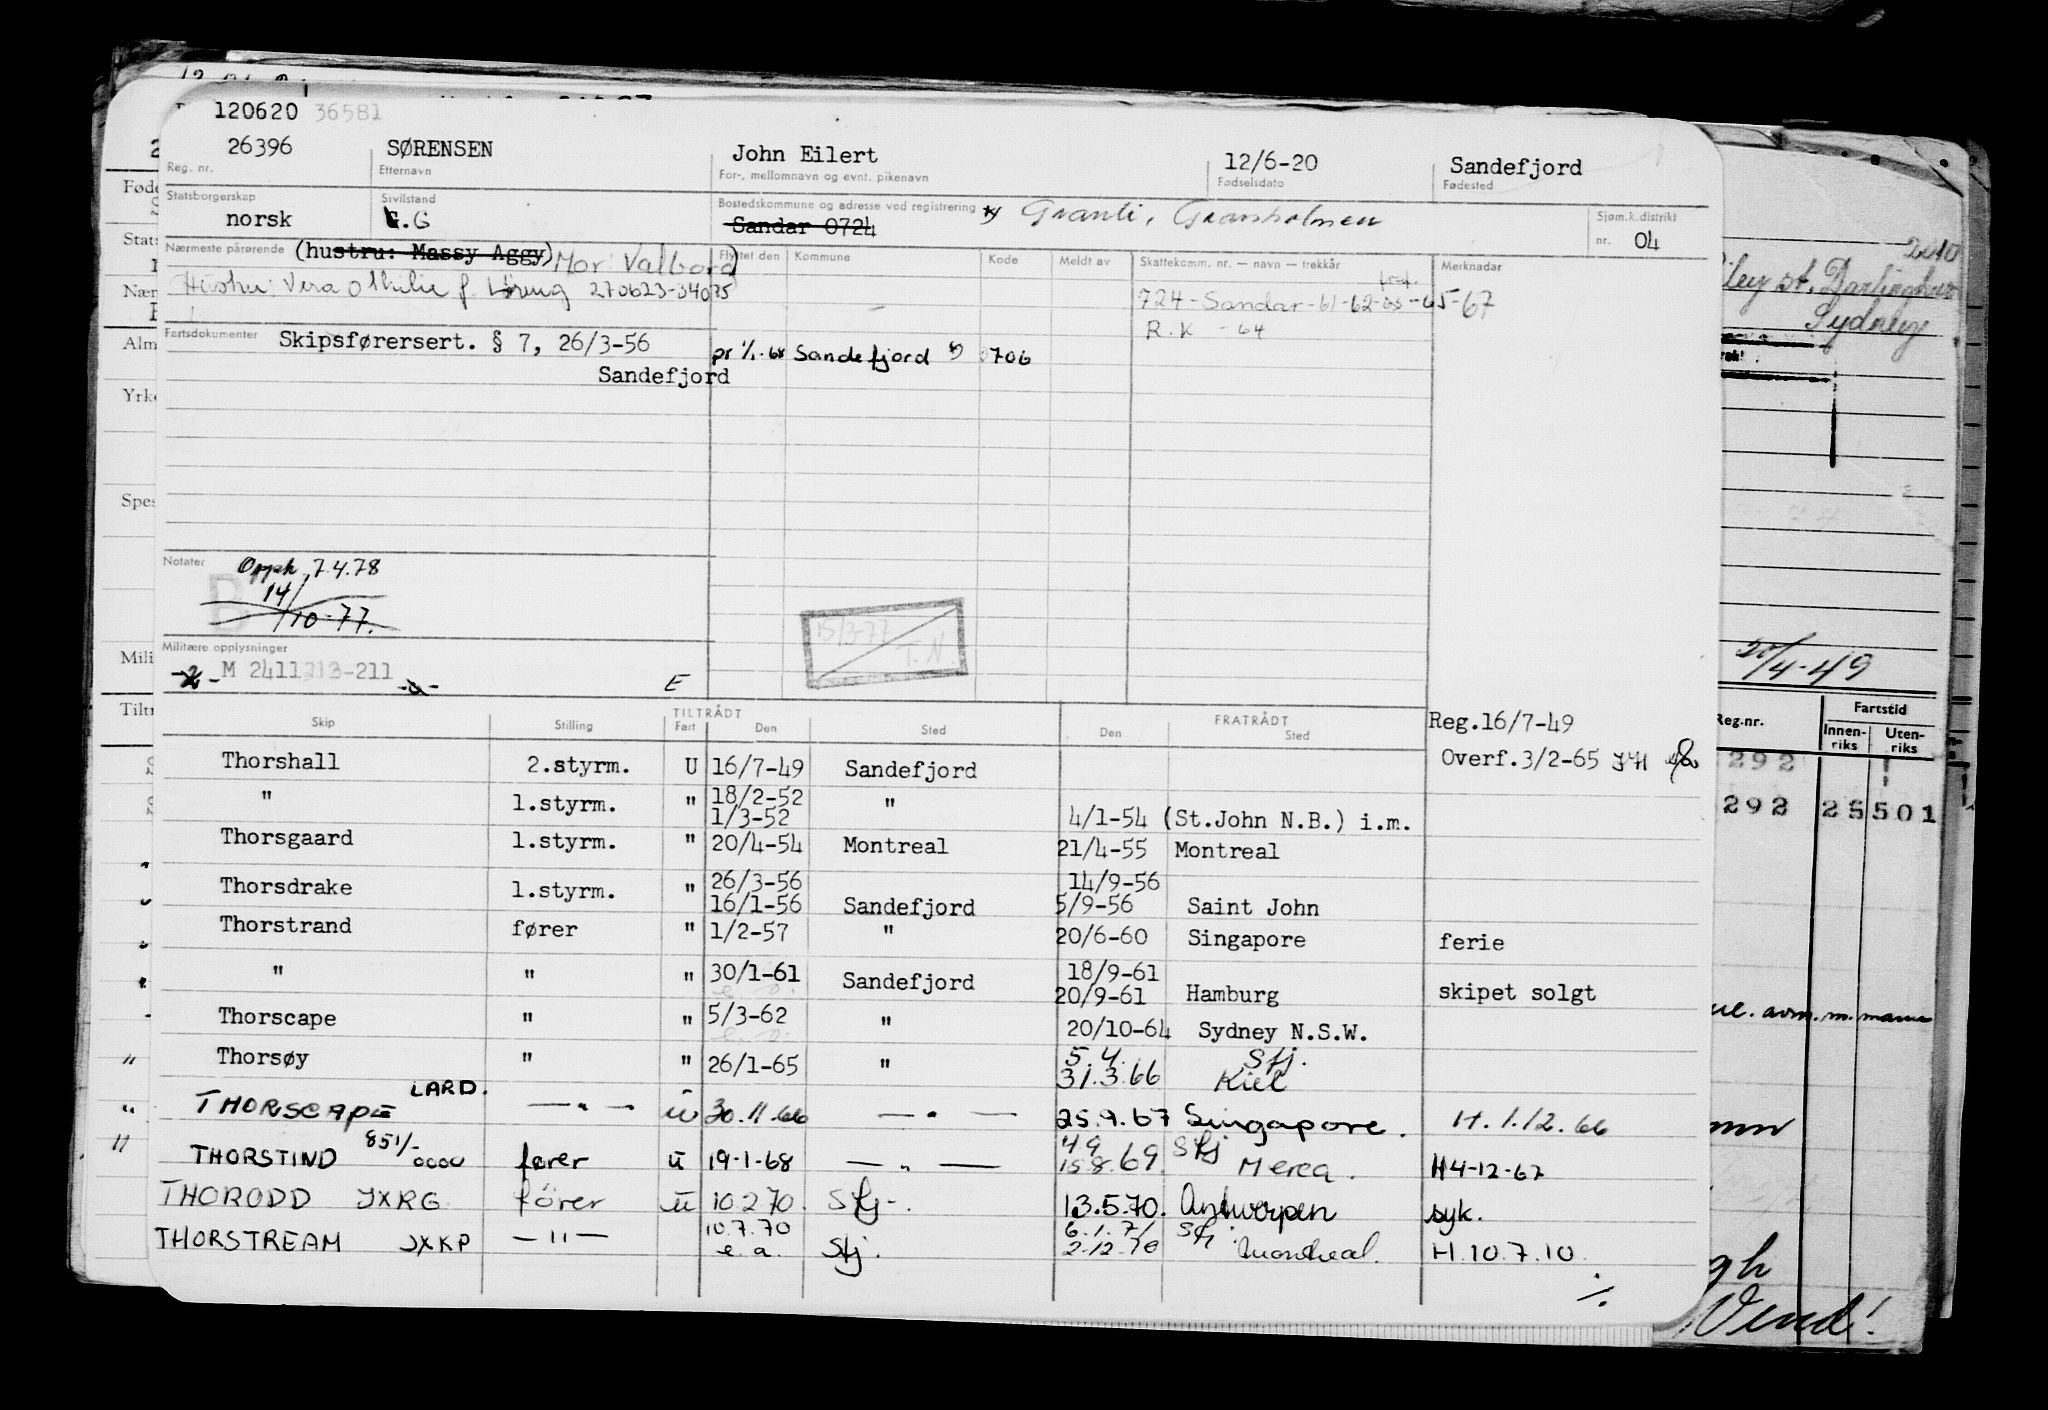 120620 36581
26396 SØRENSEN John Eilert 12/6-20 Sandefjord
Reg. nr. Etternavn For-, mellomnavn og evnt. pikenavn Fødselsdato Fødested
Statsborgerskap Sivilstand Bostedskommune og adresse ved registrering Sjøm.k.distrikt
norsk G.G Sandar 0724 Granli, Granholmen nr. 04
Nærmeste pårørende (hustru: Massy Aggy) Mor: Valborg Flyttet den Kommune Kode Meldt av Skattekomm. nr. — navn — trekkår Merknader
Hustru: Vera Othilie f. 270623-34075
724-Sandar-61-62-63-65-67
R.K -64
Fartsdokumenter Skipsførersert. § 7, 26/3-56
Sandefjord
pr 1/1-68 Sandefjord 0706
Notater Oppl. 7.4.78
B 14/10-77.
15/3-77 T.N
Militære opplysninger
M 2411213-211 E
TILTRÅDT FRATRÅDT
Skip Stilling Fart Den Sted Den Sted
Reg.16/7-49
Overf.3/2-65
Thorshall 2.styrm. U 16/7-49 Sandefjord
" 1.styrm. " 18/2-52 "
1/3-52 4/1-54 (St.John N.B.) i.m.
Thorsgaard 1.styrm. " 20/4-54 Montreal 21/4-55 Montreal
Thorsdrake 1.styrm. " 26/3-56 14/9-56
16/1-56 Sandefjord 5/9-56 Saint John
Thorstrand fører " 1/2-57 " 20/6-60 Singapore ferie
" " " 30/1-61 Sandefjord 18/9-61
20/9-61 Hamburg skipet solgt
Thorscape " " 5/3-62 " 20/10-64 Sydney N.S.W.
Thorsøy " " 26/1-65 " 5.4. Sfj.
31.3.66 Kiel
THORSCAPE LARD. — " — u 30.11.66 — " — 25.9.67 Singapore. H. 1.12.66
THORSTIND 851/-0000 fører u 19-1-68 — " — 4 9 Sfj
15.8.69. Merca. H4-12-67
THORODD JXRG fører u 10.2.70. Sfj. 13.5.70. Antwerpen syk.
THORSTREAM JXKP — " — 10.7.70 e.a. Sfj. 6.1.71 Sfj.
2.12.70 Montreal. H.10.7.70.
%
Føde
Stats
Nær
Alm
Yrke
Spes
Mili
Tiltr
Darlinghurst
Sydney
20/4-49
Reg.nr. Fartstid
Innen-riks Uten-riks
292
292 25 501
Vend!